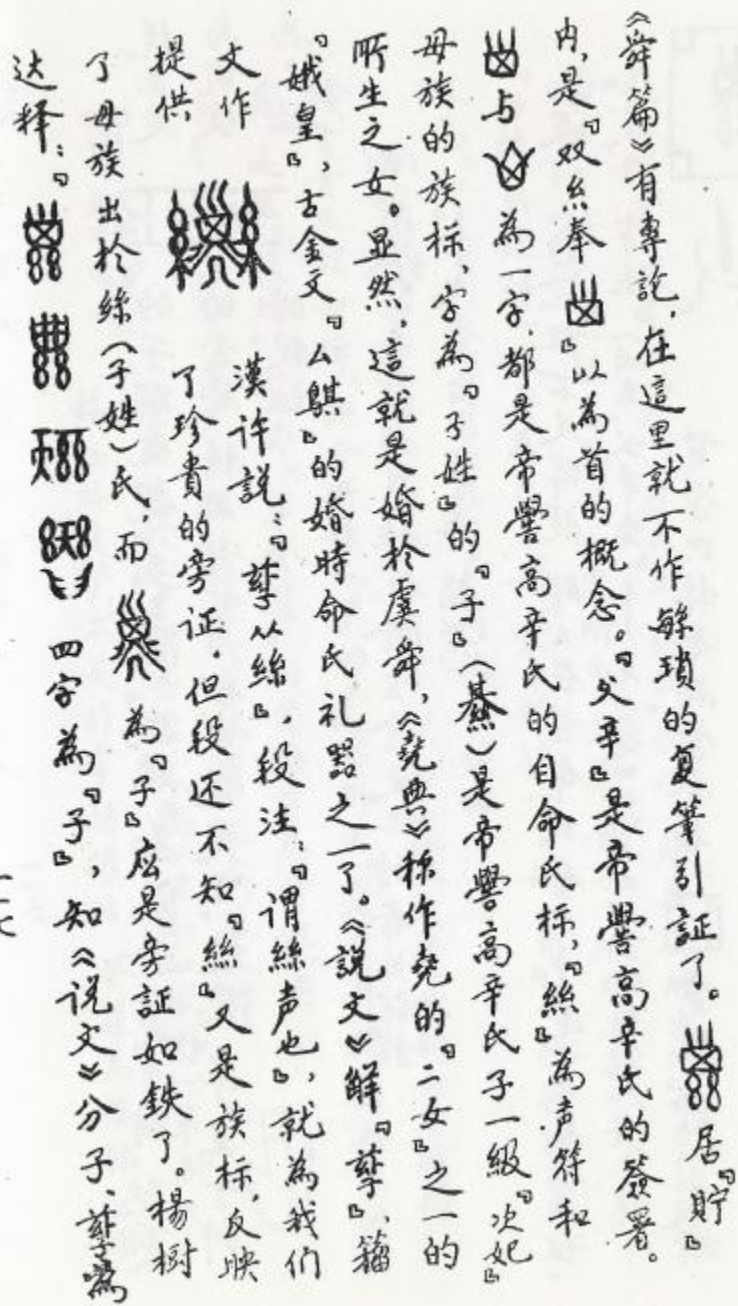 《舜篇》有專説，在這里就不作繁瑣的复筆引証了。居『貯』
内，是『双絲奉』以為首的概念。『父辛』是帝嚳高辛氏的簽署。
与為一字，都是帝嚳高辛氏的自命氏标，『絲』為声符和
母族的族标，字為『子姓』的『子』（）是帝嚳高辛氏子一級『次妃』
所生之女。显然，這就是婚於虞舜，《堯典》称作堯的『二女』之一的
『娥皇』，古金文『厶鶀』的婚時命氏礼器之一了。《説文》解『孳』，籀
文作漢许説：『孳从絲』，段注：『谓絲声也』，就為我们
提供了珍貴的旁证，但段还不知『絲』又是族标，反映
了母族出於絲（子姓）氏，而為『子』应是旁証如鉄了。楊樹
达释：『四字為『子』，知《说文》分子、孳為